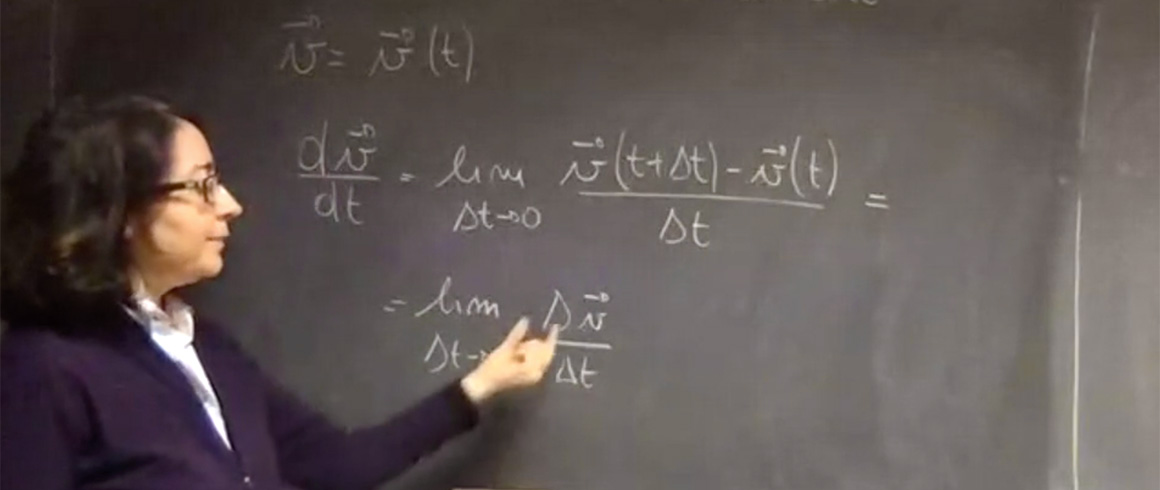 v⃗ = v⃗ (t)
dv⃗/dt = lim Δt→0 (v⃗(t+Δt) - v⃗(t))/Δt =
= lim Δt→ Δv⃗/Δt